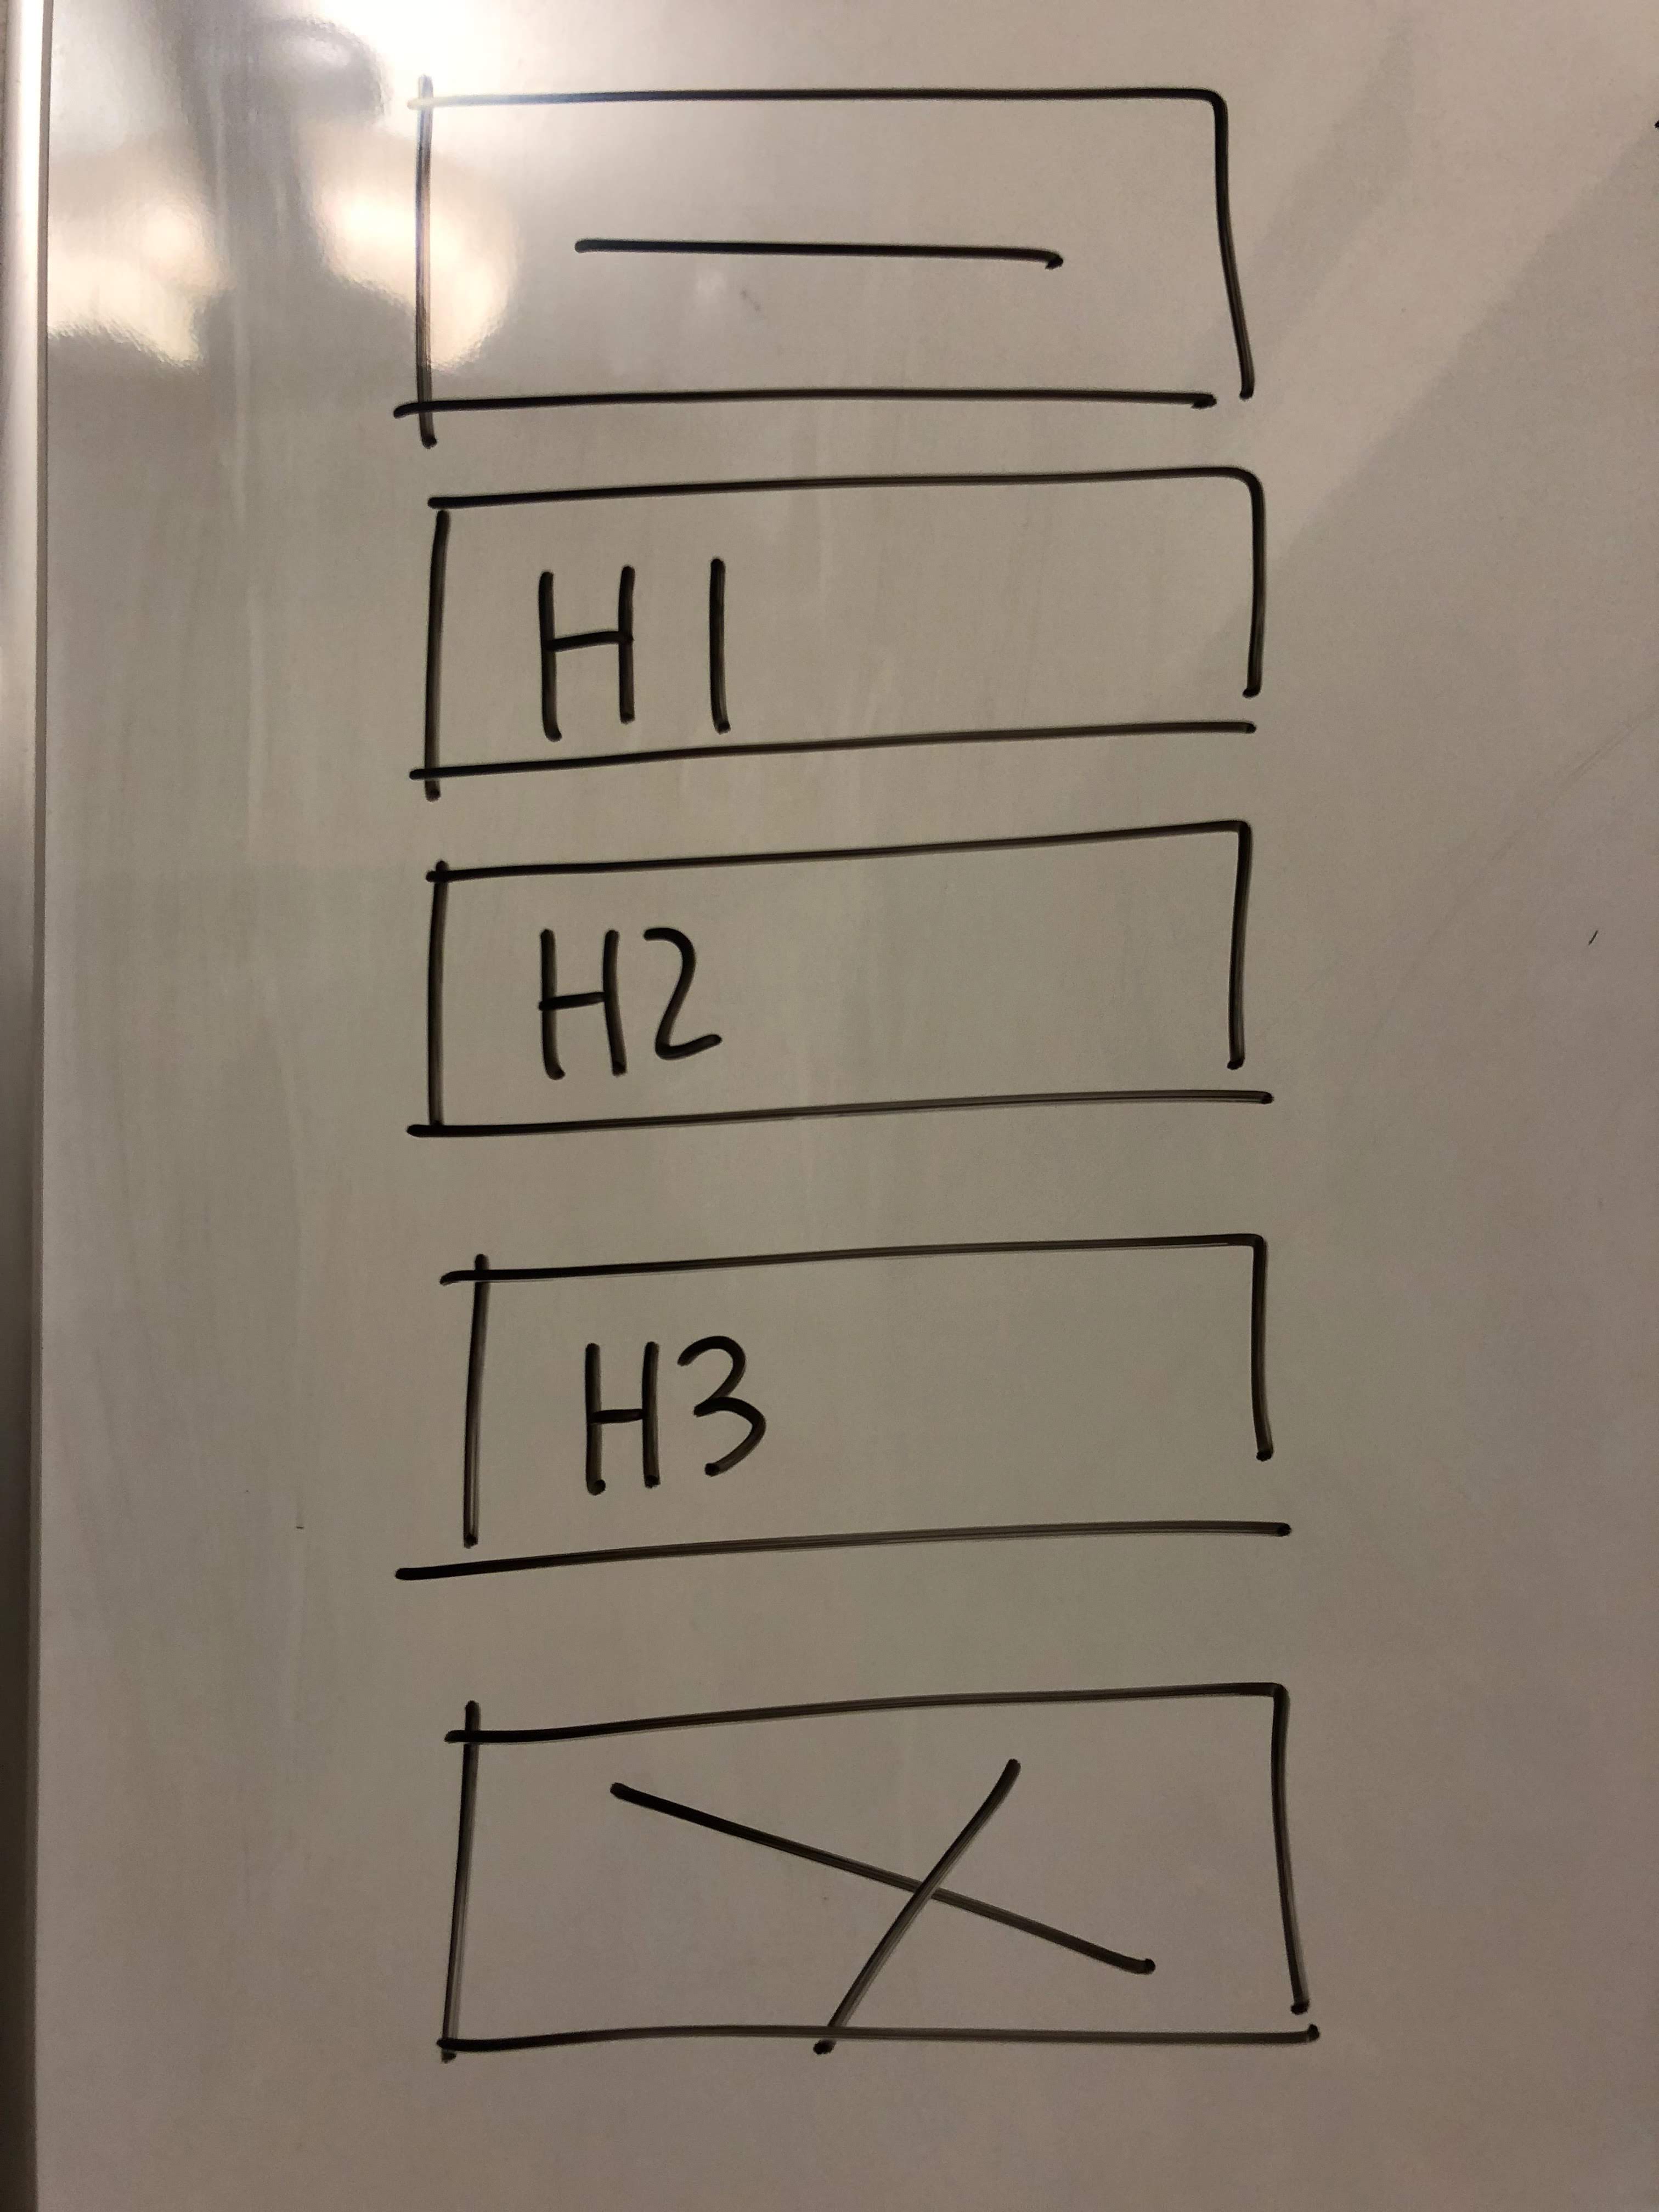 H1
H2
H3